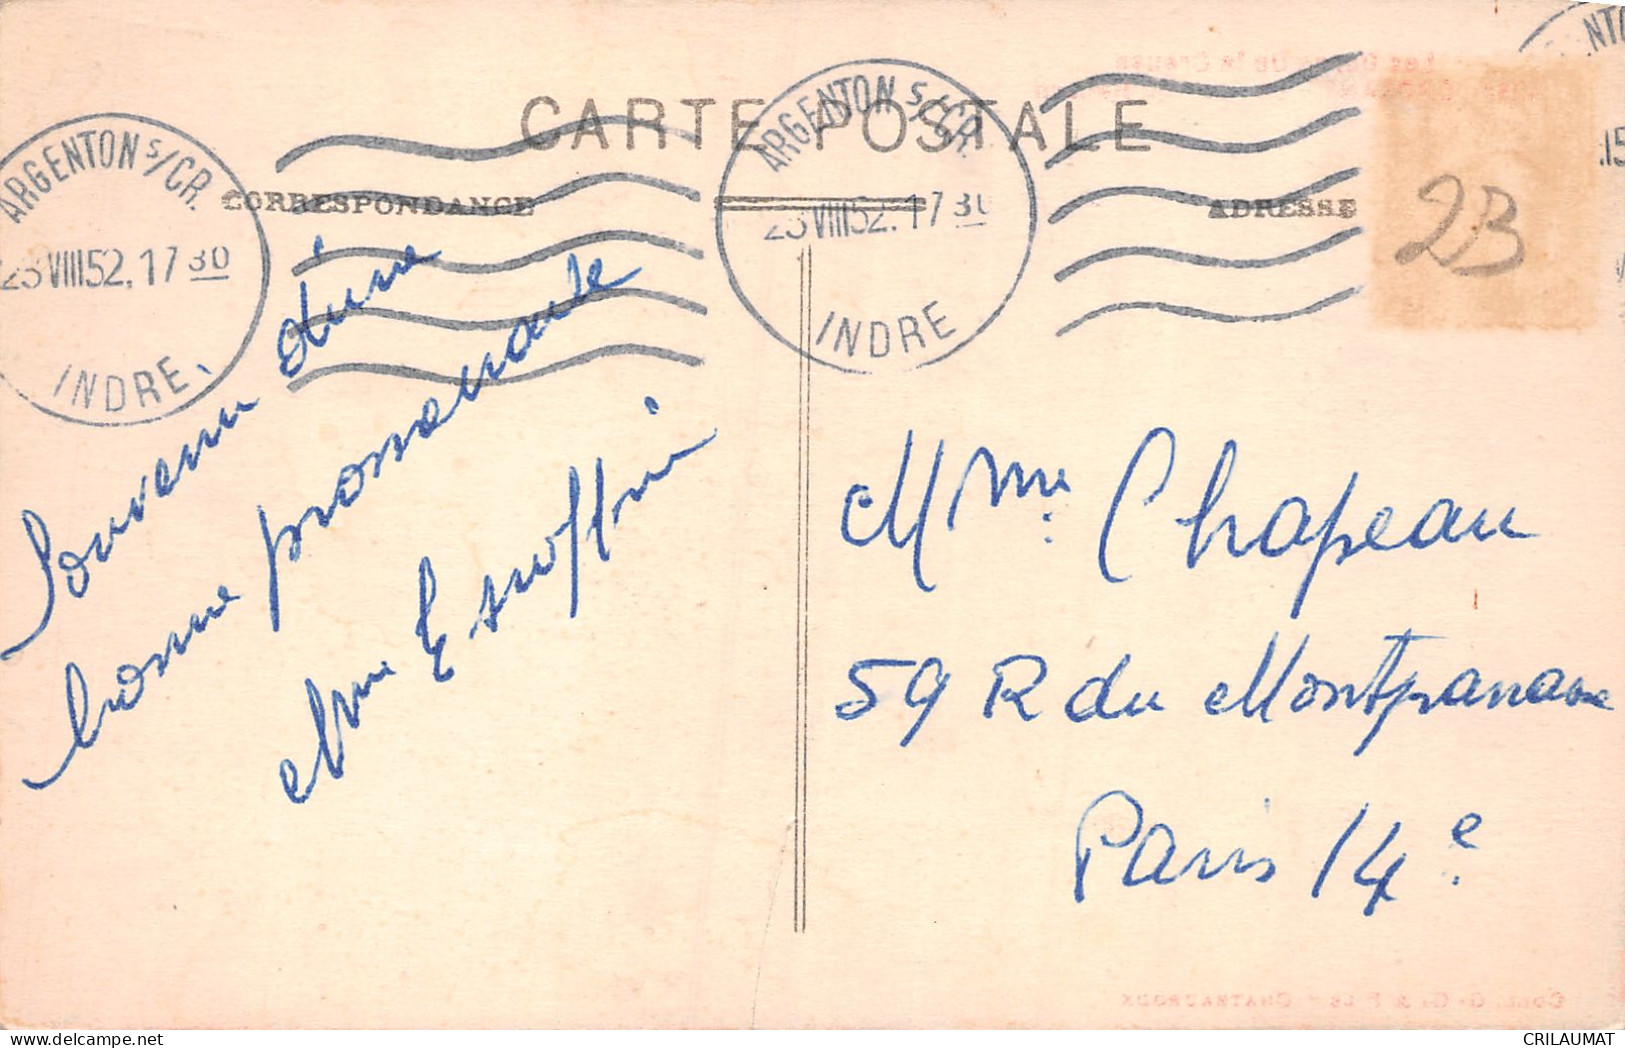 CARTE POSTALE
CORRESPONDANCE
ADRESSE
ARGENTON S/CR.
23 VIII 52. 17 30
INDRE.
ARGENTON S/CR.
23 VIII 52. 17 30
INDRE
23
Souvenir d'une
bonne promenade
Mme
Mme. Chapeau
59 R du Montparnasse
Paris 14e
Coll. G. G. & Fils - Chateauroux
CRILAUMAT